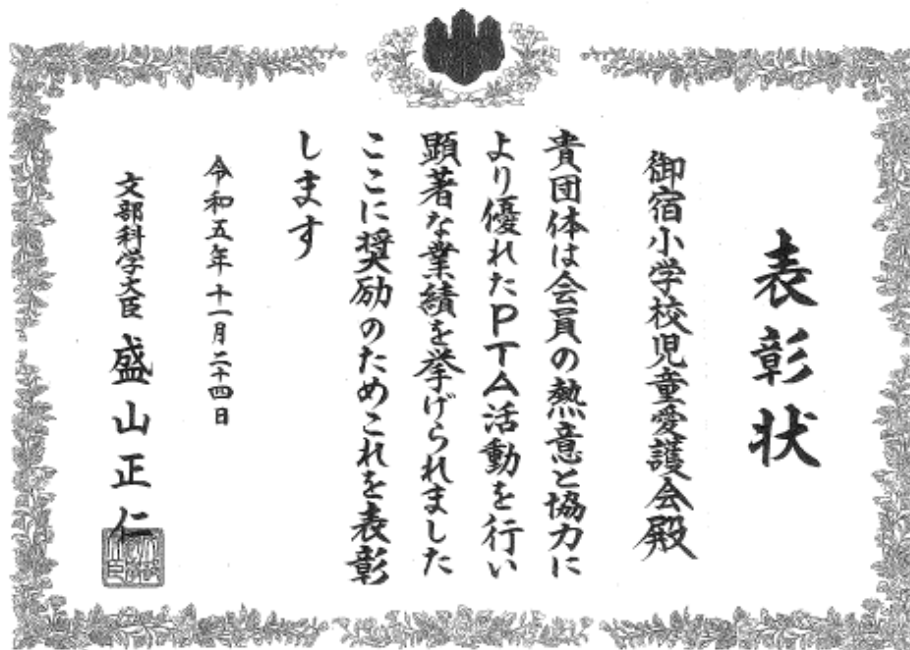 表彰状
御宿小学校児童愛護会殿
貴団体は会員の熱意と協力に
より優れたPTA活動を行い
顕著な業績を挙げられました
ここに奨励のためこれを表彰
します
令和五年十一月二十四日
文部科学大臣 盛山正仁